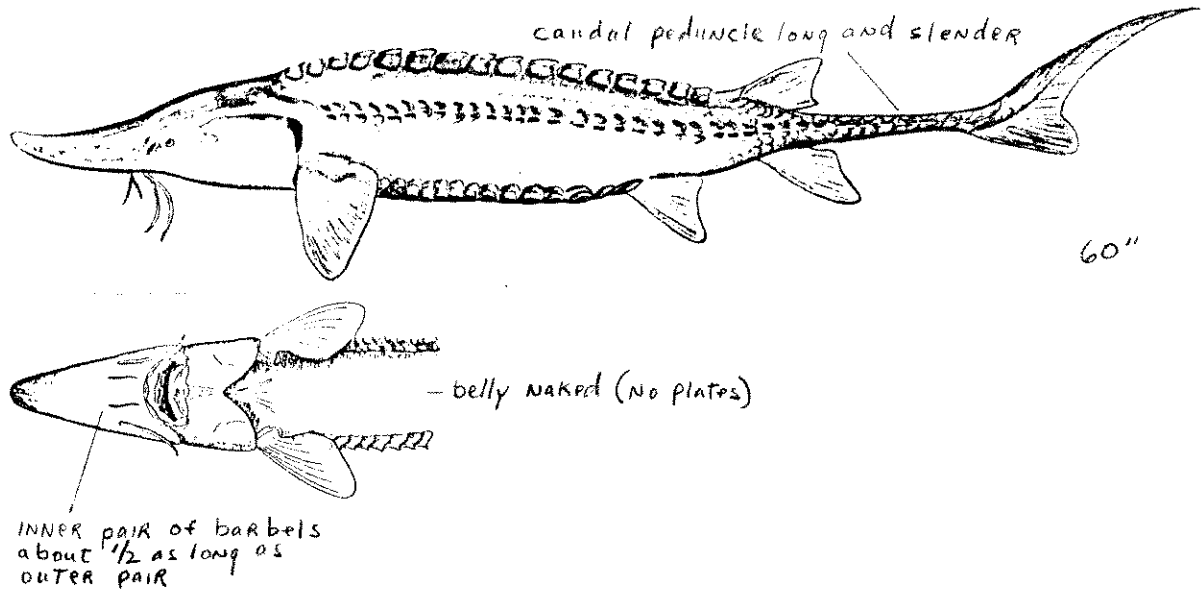 caudal peduncle long and slender
60"
belly naked (No plates)
INNER pair of barbels
about 1/2 as long as
OUTER PAIR